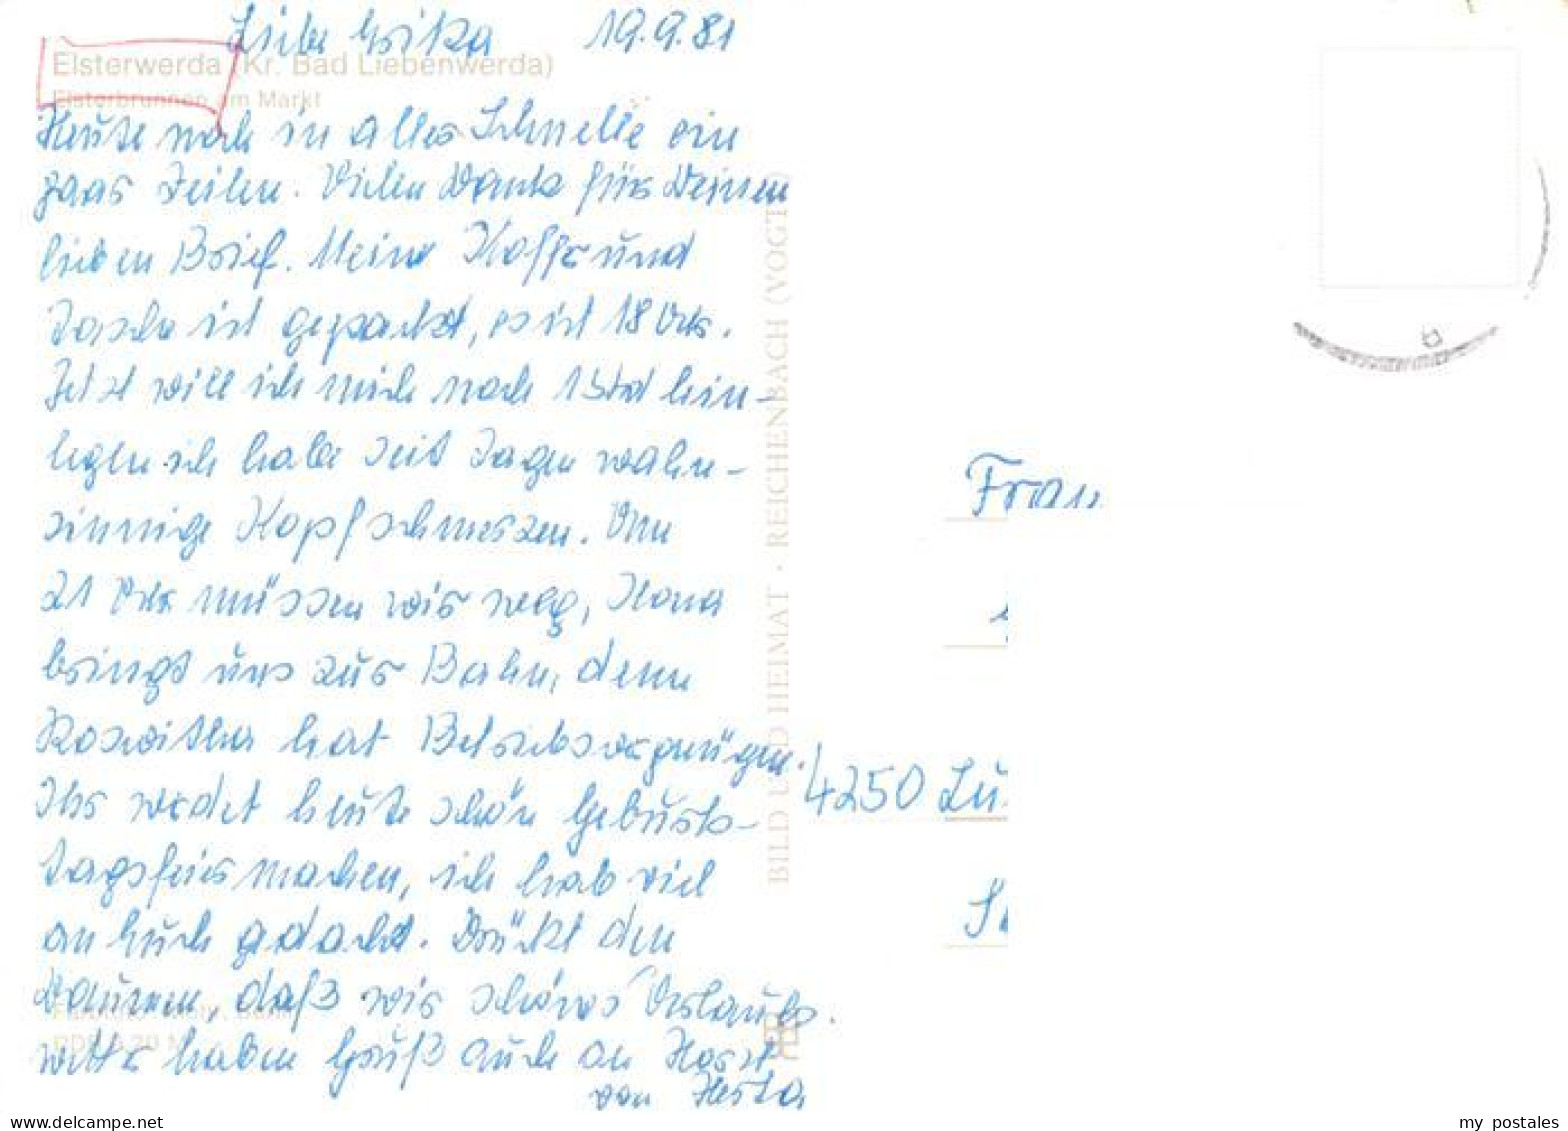 Liebe Erika 19.9.81
Elsterwerda (Kr. Bad Liebenwerda)
Elsterbrunnen am Markt
Heute noch in aller Schnelle ein
paar Zeilen. Vielen Dank für Deinen
lieben Brief. Meine Koffer und
Tasche ist gepackt, es ist 18 Uhr.
Jetzt will ich mich noch 1 Std hin-
legen ich habe seit Tagen wahn-
sinnige Kopfschmerzen. Um
21 Uhr müssen wir weg, Ilona
bringt uns zur Bahn, denn
Roswitha hat Betriebsvergnügen.
Ihr werdet heute schön Geburts-
tagsfeier machen, ich hab viel
an Euch gedacht. Drückt den
Daumen, daß wir schönes Urlaubs-
wetter haben Gruß auch an Horst
von Herta
BILD UND HEIMAT · REICHENBACH (VOGTL)
Frau
4250 Lu
my postales